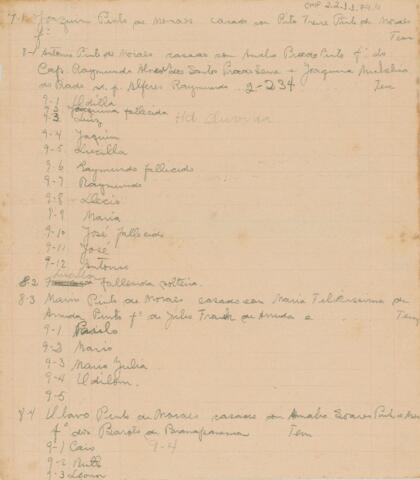 7-1 Joaquim Pinto de Moraes casado com Rita Pinto de Moraes
fº Tem
8-1 Antonio Pinto de Moraes casado com Amalia Prado Pinto fª do
Cap. Raymundo Alvares dos Santos Prado e Joaquina
do Prado n.p. Alferes Raymundo 2-234 Tem
9-1
9-2 Joaquina fallecida
9-3 Luiz
9-4 Joaquim
9-5 Lucilla
9-6 Raymundo fallecido
9-7 Raymundo
9-8 Decio
9-9 Maria
9-10 José fallecido
9-11 José
9-12 Antonio
8-2 Fallecida solteira.
8-3 Mario Pinto de Moraes casado com Maria
Arruda Pinto fª de Julio de Arruda e Tem
9-1 Paulo
9-2 Mario
9-3 Maria Julia
9-4
9-5
8-4 Olavo Pinto de Moraes casado com Amalia Soares Pinto de
fª dos Barões de Paranapanema Tem
9-1 Caio 9-4
9-2 Ruth
9-3 Leonor